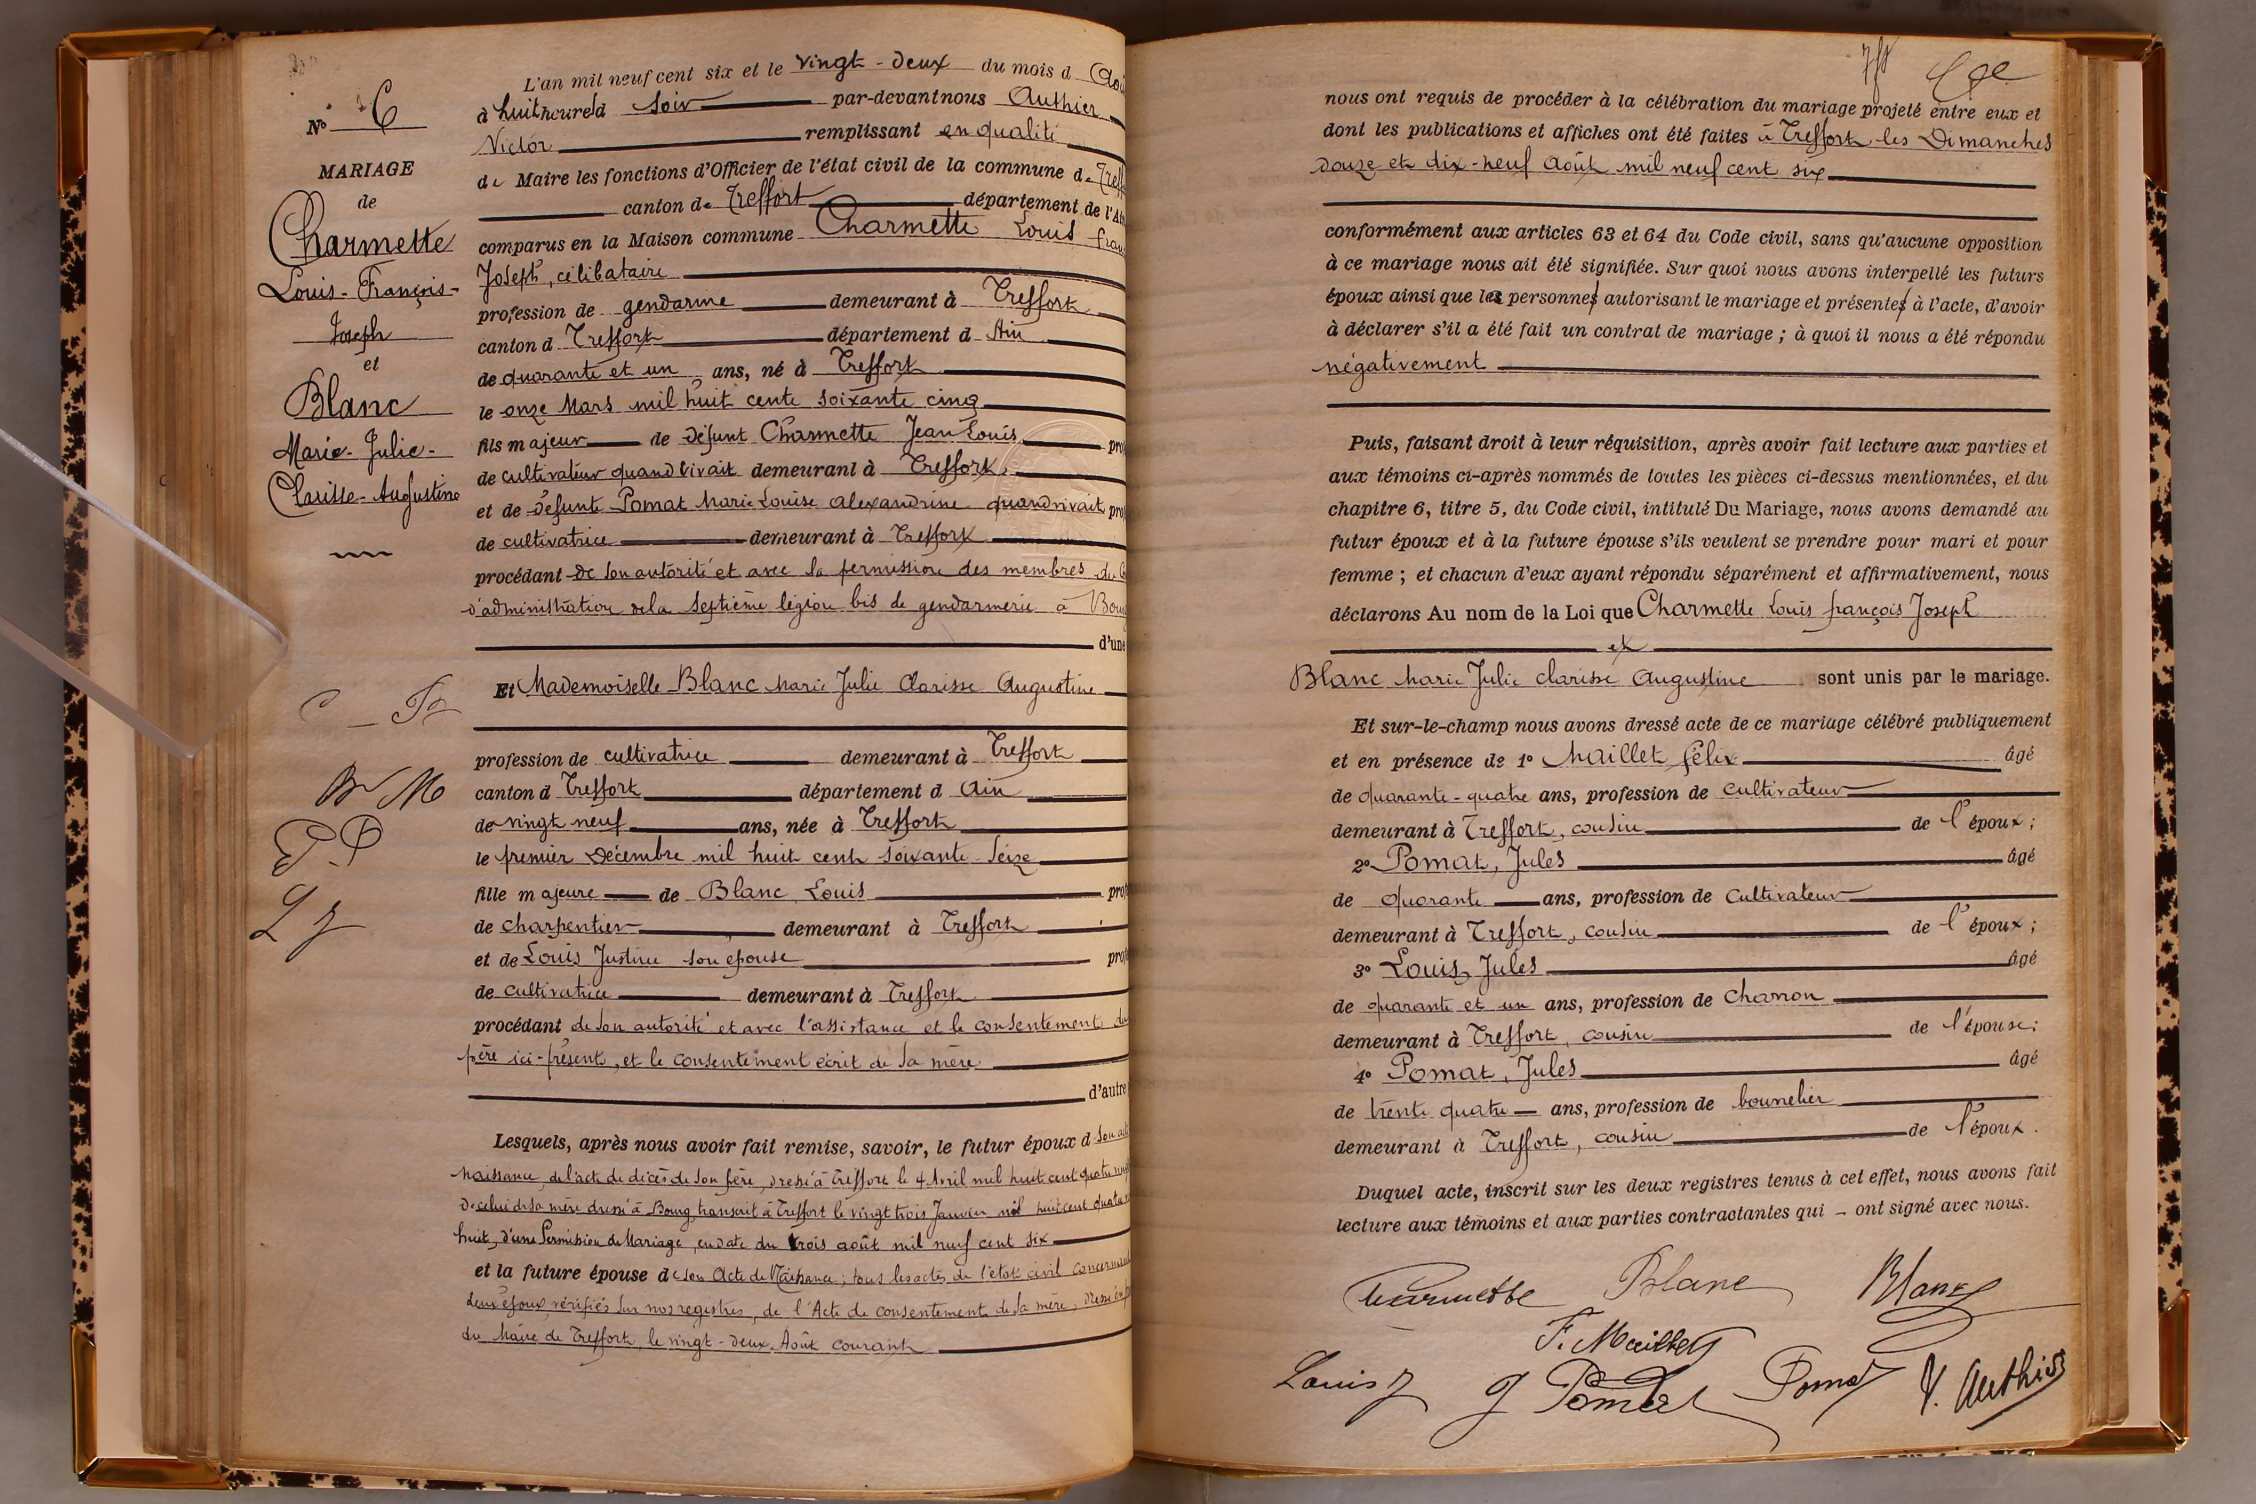 N° 6
MARIAGE
de
Charmette
Louis-François-
Joseph
et
Blanc
Marie-Julie-
Clarisse-Augustine
C F
B M
P. P
L J
L'an mil neuf cent six et le vingt-deux du mois d Aoû
à huit heures d soir par-devant nous Authier
Victor remplissant en qualité
de Maire les fonctions d'Officier de l'état civil de la commune de Treff
canton de Treffort département de l'Ain
comparus en la Maison commune Charmette Louis fran
Joseph, célibataire
profession de gendarme demeurant à Treffort
canton d Treffort département d Ain
de quarante et un ans, né à Treffort
le onze Mars mil huit cent soixante cinq
fils majeur de défunt Charmette Jean Louis pro
de cultivateur quand vivait demeurant à Treffort
et de défunte Pomat Marie Louise Alexandrine quand vivait pro
de cultivatrice demeurant à Treffort
procédant de son autorité et avec la permission des membres du
d'administration de la septième légion bis de gendarmerie à Bourg
d'une
Et Mademoiselle Blanc Marie Julie Clarisse Augustine
profession de cultivatrice demeurant à Treffort
canton d Treffort département d Ain
de vingt neuf ans, née à Treffort
le premier Décembre mil huit cent soixante-seize
fille majeure de Blanc Louis pro
de charpentier demeurant à Treffort
et de Louis Justine son épouse prof
de cultivatrice demeurant à Treffort
procédant de son autorité et avec l'assistance et le consentement du
père ici-présent, et le consentement écrit de sa mère
d'autre
Lesquels, après nous avoir fait remise, savoir, le futur époux d son
naissance, de l'acte de décès de son père, dressé à Treffort le 4 Avril mil huit cent quatre
de celui de sa mère dressé à Bourg, transcrit à Treffort le vingt trois Janvier mil huit cent quatre
huit, d'une Permission de Mariage, en date du trois août mil neuf cent six
et la future épouse de son Acte de Naissance; tous les actes de l'état civil concernant
deux époux vérifiés sur nos registres, de l'Acte de consentement de sa mère, dressé
du Maire de Treffort, le vingt-deux Août courant
nous ont requis de procéder à la célébration du mariage projeté entre eux et
dont les publications et affiches ont été faites à Treffort les Dimanches
douze et dix-neuf Août mil neuf cent six
conformément aux articles 63 et 64 du Code civil, sans qu'aucune opposition
à ce mariage nous ait été signifiée. Sur quoi nous avons interpellé les futurs
époux ainsi que les personnes autorisant le mariage et présentes à l'acte, d'avoir
à déclarer s'il a été fait un contrat de mariage; à quoi il nous a été répondu
négativement
Puis, faisant droit à leur réquisition, après avoir fait lecture aux parties et
aux témoins ci-après nommés de toutes les pièces ci-dessus mentionnées, et du
chapitre 6, titre 5, du Code civil, intitulé Du Mariage, nous avons demandé au
futur époux et à la future épouse s'ils veulent se prendre pour mari et pour
femme; et chacun d'eux ayant répondu séparément et affirmativement, nous
déclarons Au nom de la Loi que Charmette Louis françois Joseph
et
Blanc Marie Julie Clarisse Augustine sont unis par le mariage.
Et sur-le-champ nous avons dressé acte de ce mariage célébré publiquement
et en présence de 1° Maillet félix âgé
de quarante-quatre ans, profession de cultivateur
demeurant à Treffort, cousin de l'époux;
2° Pomat, Jules âgé
de quarante ans, profession de cultivateur
demeurant à Treffort, cousin de l'époux;
3° Louis, Jules âgé
de quarante et un ans, profession de charron
demeurant à Treffort, cousin de l'épouse;
4° Pomat, Jules âgé
de trente quatre ans, profession de bourrelier
demeurant à Treffort, cousin de l'époux.
Duquel acte, inscrit sur les deux registres tenus à cet effet, nous avons fait
lecture aux témoins et aux parties contractantes qui ont signé avec nous.
Charmette Blanc Blanc
F. Maillet
Louis J J Pomat Pomat V. Authier